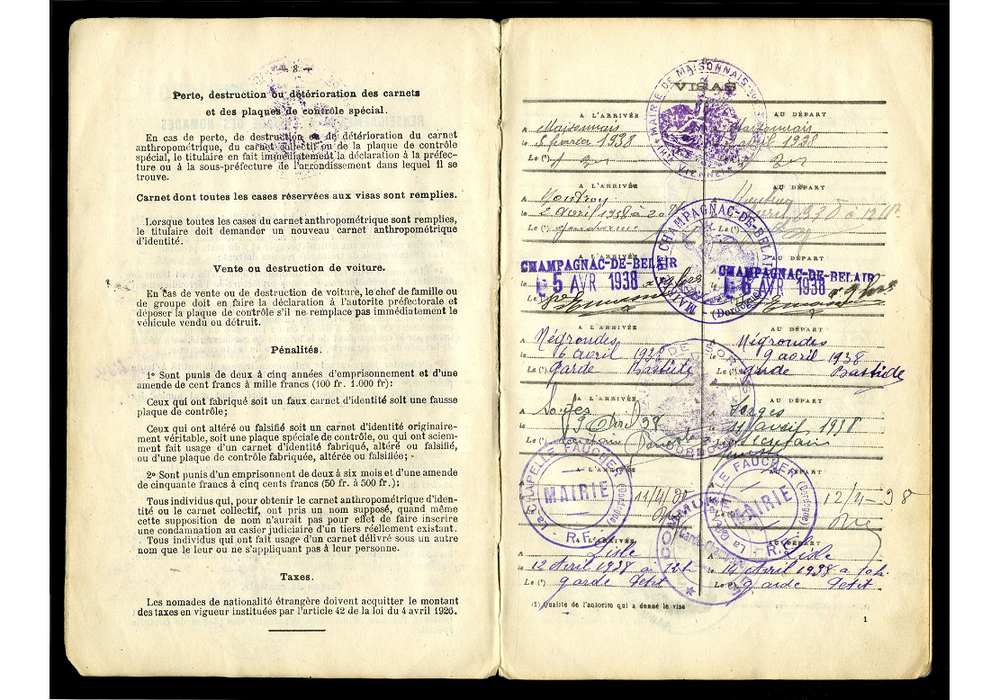 — 8 —
Perte, destruction ou détérioration des carnets
et des plaques de contrôle spécial.
En cas de perte, de destruction ou de détérioration du carnet
anthropométrique, du carnet collectif ou de la plaque de contrôle
spécial, le titulaire en fait immédiatement la déclaration à la préfec-
ture ou à la sous-préfecture de l'arrondissement dans lequel il se
trouve.
Carnet dont toutes les cases réservées aux visas sont remplies.
Lorsque toutes les cases du carnet anthropométrique sont remplies,
le titulaire doit demander un nouveau carnet anthropométrique
d'identité.
Vente ou destruction de voiture.
En cas de vente ou de destruction de voiture, le chef de famille ou
de groupe doit en faire la déclaration à l'autorite préfectorale et
déposer la plaque de contrôle s'il ne remplace pas immédiatement le
véhicule vendu ou détruit.
Pénalités.
1º Sont punis de deux à cinq années d'emprisonnement et d'une
amende de cent francs à mille francs (100 fr. 1.000 fr):
Ceux qui ont fabriqué soit un faux carnet d'identité soit une fausse
plaque de contrôle;
Ceux qui ont altéré ou falsifié soit un carnet d'identité originaire-
ment véritable, soit une plaque spéciale de contrôle, ou qui ont sciem-
ment fait usage d'un carnet d'identité fabriqué, altéré ou falsifié,
ou d'une plaque de contrôle fabriquée, altérée ou falsifiée;
2º Sont punis d'un emprisonnent de deux à six mois et d'une amende
de cinquante francs à cinq cents francs (50 fr. à 500 fr.);
Tous individus qui, pour obtenir le carnet anthropométrique d'iden-
tité ou le carnet collectif, ont pris un nom supposé, quand même
cette supposition de nom n'aurait pas pour effet de faire inscrire
une condamnation au casier judiciaire d'un tiers réellement existant.
Tous individus qui ont fait usage d'un carnet délivré sous un autre
nom que le leur ou ne s'appliquant pas à leur personne.
Taxes.
Les nomades de nationalité étrangère doivent acquitter le montant
des taxes en vigueur instituées par l'article 42 de la loi du 4 avril 1926.
VISAS
MAIRIE DE MAISONNAIS
Hte VIENNE
A L'ARRIVÉE AU DÉPART
A Maisonnais Maisonnais
le 3 février 1938 avril 1938
Le (1)
A L'ARRIVÉE AU DÉPART
le 2 avril 1938 à
Le (1) gendarme Le (1)
MAIRIE CHAMPAGNAC-DE-BELAIR
(Dordogne)
AU DÉPART
CHAMPAGNAC-DE-BELAIR CHAMPAGNAC-DE-BELAIR
5 AVR 1938 6 AVR 1938
A L'ARRIVÉE AU DÉPART
Négrondes Négrondes
le 6 avril 1938 9 avril 1938
Le (1) garde Bastide Le (1) garde Bastide
A L'ARRIVÉE AU DÉPART
A Sorges Sorges
9 38 11 avril 1938
Le (1) Secrétaire
A L'ARRIVÉE AU DÉPART
La CHAPELLE FAUCHER (Dordogne) La CHAPELLE FAUCHER (Dordogne)
MAIRIE MAIRIE
R.F. R.F.
11/4/38 12/4-38
COMMUNE
A L'ARRIVÉE AU DÉPART
A Lisle Lisle
le 12 avril 1938 à le 14 avril 1938 à 10h
Le (1) garde Petit Le (1) garde Petit
(1) Qualité de l'autorité qui a donné le visa
1